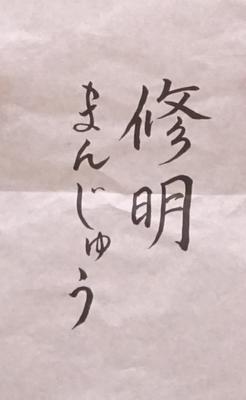 修明
まんじゅう